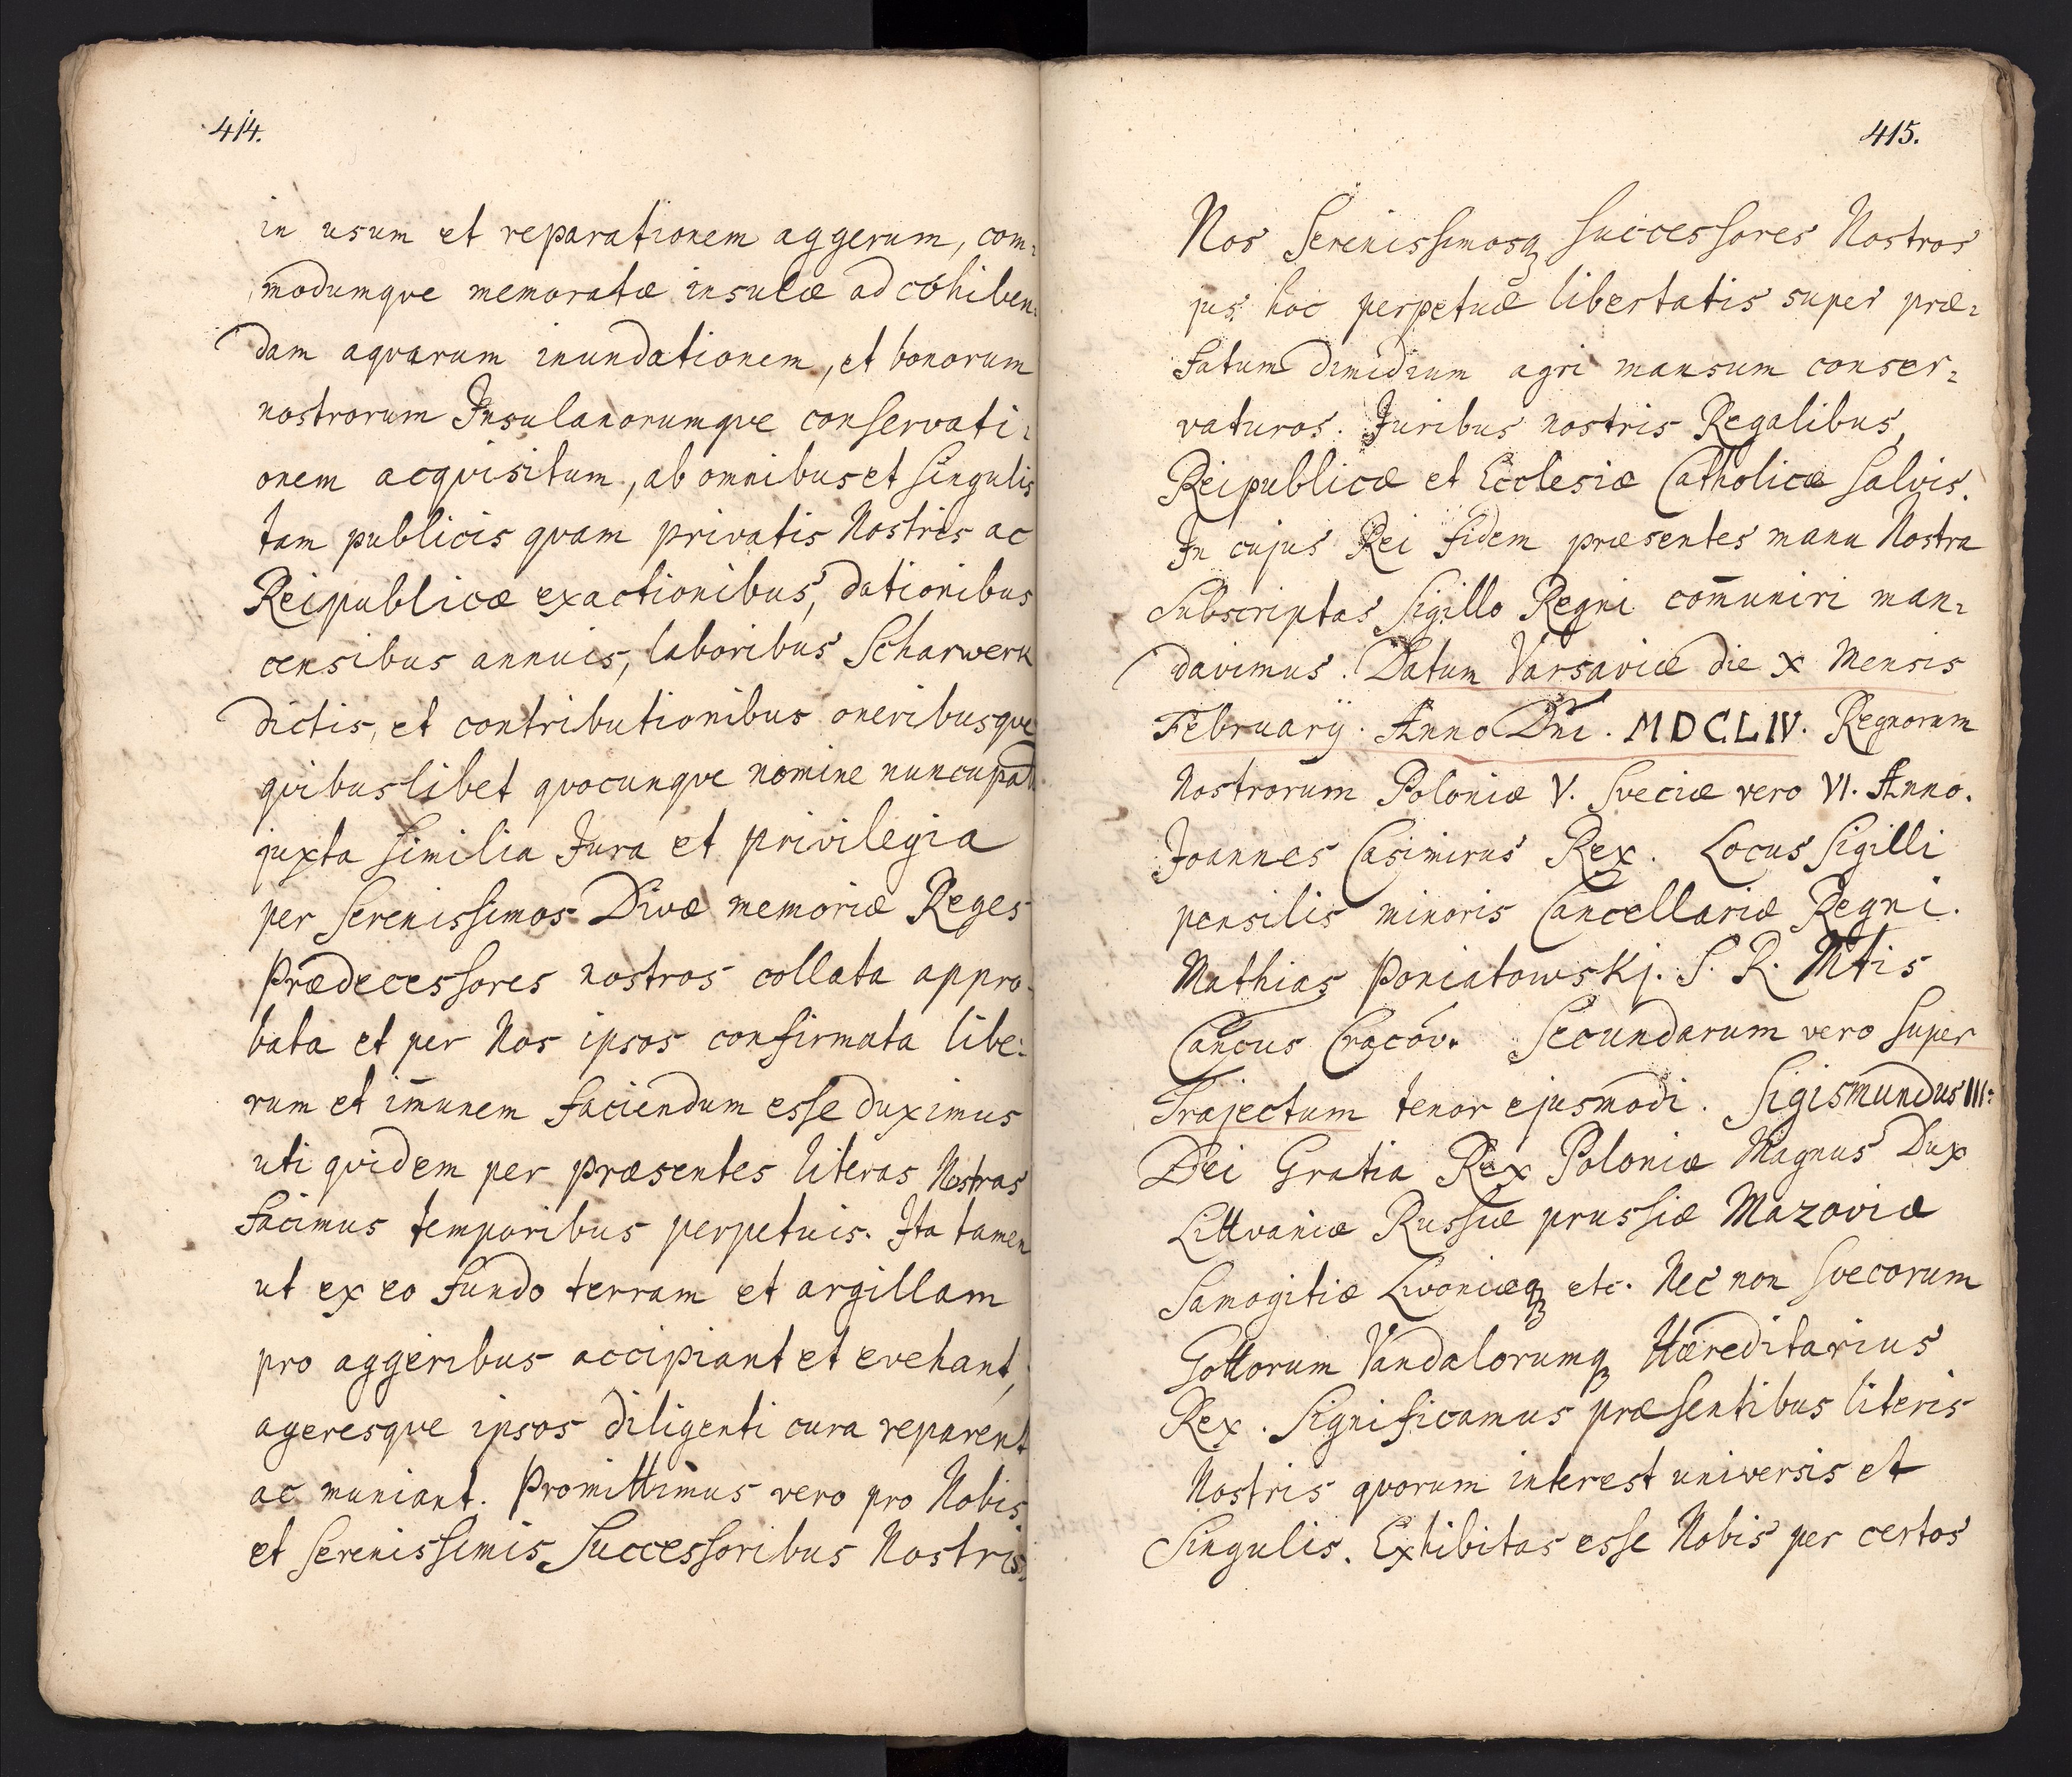 414.
in usum et reparationem aggerum, com:
modumqve memoratæ insulæ ad cohiben:
dam aqvarum inundationem, et bonorum
nostrorum Insulanorumqve conservati:
onem acqvisitum, ab omnibus et singulis
tam publicis qvam privatis Nostris ac
Reipublicæ exactionibus, dationibus
censibus annuis, laboribus Scharwerk
dictis, et contributionibus oneribusqve
qvibuslibet qvocunqve nomine nuncupat
juxta similia Jura et privilegia
per Serenissimos Divæ memoriæ Reges
Prædecessores nostros collata appro
bata et per Nos ipsos confirmata libe:
rum et im̄unem faciendum esse duximus
uti qvidem per præsentes literas Nostras
facimus temporibus perpetuis. Ita tamen
ut ex eo fundo terram et argillam
pro aggeribus accipiant et evehant,
ageresqve ipsos diligenti cura reparent
ac muniant. Promittimus vero pro Nobis
et Serenissimis Successoribus Nostris
415.
Nos Serenissimosq Successores Nostros
jus hoc perpetuæ libertatis super præ:
fatum dimidium agri mansum conser:
vaturos. Juribus nostris Regalibus,
Reipublicæ et Ecclesiæ Catholicæ salvis.
In cujus Rei fidem præsentes manu Nostra
Subscriptas Sigillo Regni com̄uniri man:
davimus. Datum Varsaviæ die X Mensis
Februarij. Anno Dni. MDCLIV. Regnorum
Nostrorum Poloniæ V. Sveciæ vero VI. Anno.
Joannes Casimirus Rex. Locus Sigilli
pensilis minoris Cancellariæ Regni.
Mathias Poniatowskj. S. R. Mtis
Cancus Cracov. Secundarum vero super
Trajectum tenor ejusmodi. Sigismundus III:
Dei Gratia Rex Poloniæ Magnus Dux
Littvaniæ Russiæ prussiæ Mazoviæ
Samogitiæ Livoniæq etc. Nec non Svecorum
Gottorum Vandalorumq Hæreditarius
Rex. Significamus præsentibus literis
Nostris qvorum interest universis et
Singulis. Exhibitas esse Nobis per certos